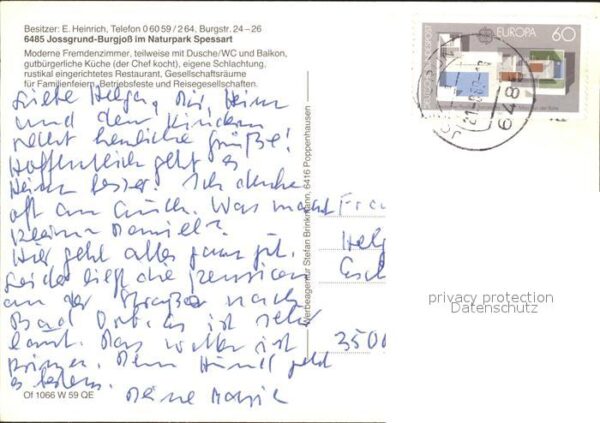 Besitzer: E. Heinrich, Telefon 0 60 59 / 2 64, Burgstr. 24 – 26
6485 Jossgrund-Burgjoß im Naturpark Spessart
Moderne Fremdenzimmer, teilweise mit Dusche/WC und Balkon,
gutbürgerliche Küche (der Chef kocht), eigene Schlachtung,
rustikal eingerichtetes Restaurant, Gesellschaftsräume
für Familienfeiern, Betriebsfeste und Reisegesellschaften.
Liebe Helga, Dir, Heinz
und den Kindern
recht herzliche Grüße!
Hoffentlich geht es
Heinz besser. Ich denke
oft an Euch. Was macht
kleine Daniel?
Hier geht alles ganz gut.
Leider liegt die Pension
an der Straße nach
Bad Orb. Es ist sehr
laut. Das Wetter ist
prima. Dem Hündl geht
es bestens.
Deine
Of 1066 W 59 QE
Werbeagentur Stefan Brinkmann, 6416 Poppenhausen
EUROPA 60
DEUTSCHE BUNDESPOST
648
Fra
Helg
Esch
3500
privacy protection
Datenschutz